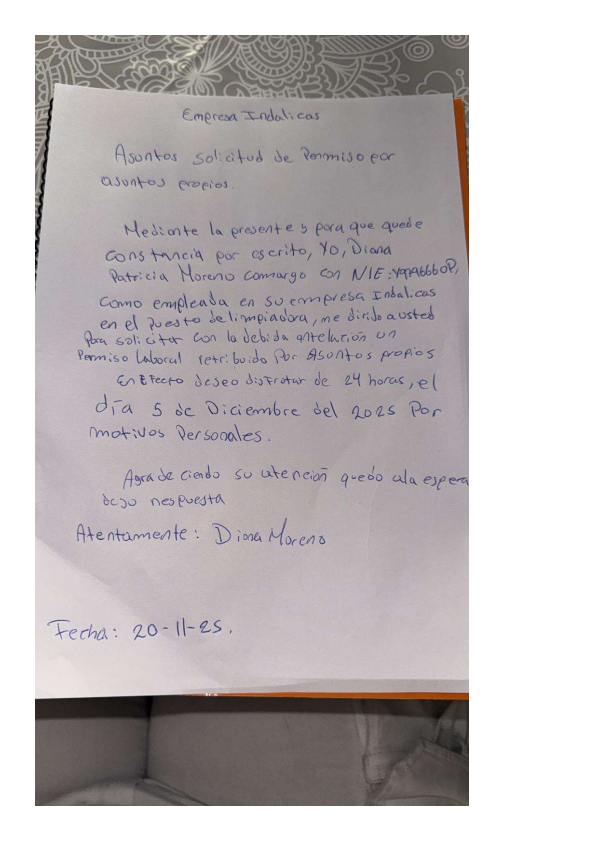 Empresa Indalicas
Asuntos solicitud de Permiso por
asuntos propios.
Mediante la presente y para que quede
constancia por escrito, YO, Diana
Patricia Moreno camargo con NIE:
como empleada en su empresa Indalicas
en el puesto de limpiadora, me dirido a usted
Para solicitar con la debida antelación un
Permiso Laboral retribuido Por Asuntos propios
En Efecto deseo disfrutar de 24 horas, el
día 5 de Diciembre del 2025 Por
motivos Personales.
Agradeciendo su atención quedo a la espera
de su respuesta
Atentamente: Diana Moreno
Fecha: 20-11-25.